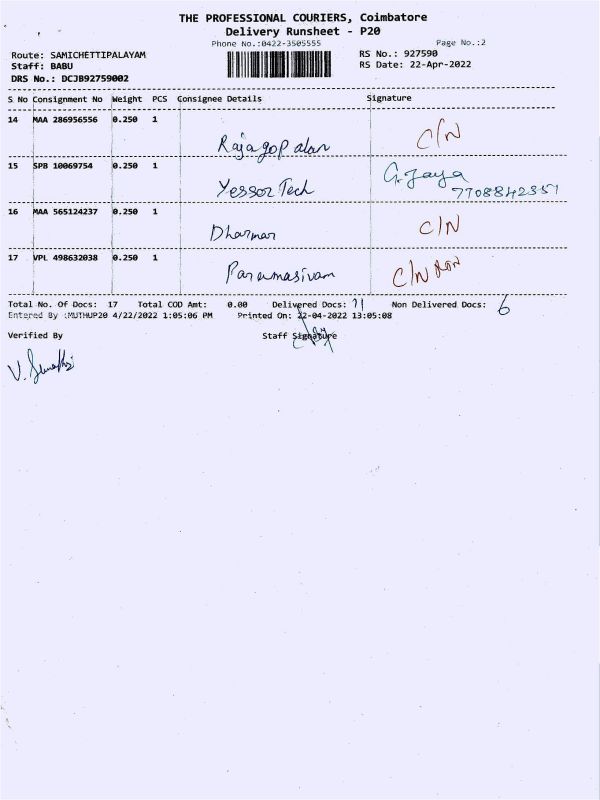 THE PROFESSIONAL COURIERS, Coimbatore
Delivery Runsheet - P20
Phone No.:0422-3505555 Page No.:2
Route: SAMICHETTIPALAYAM RS No.: 927590
Staff: BABU RS Date: 22-Apr-2022
DRS No.: DCJB92759002
S No Consignment No Weight PCS Consignee Details Signature
14 MAA 286956556 0.250 1
Rajagopalan C/N
15 SPB 10069754 0.250 1 G.Jaya
Yessor Tech 7708842351
16 MAA 565124237 0.250 1
Dharmar C/N
17 VPL 498632038 0.250 1
Paramasivam C/N
Total No. Of Docs: 17 Total COD Amt: 0.00 Delivered Docs: 11 Non Delivered Docs: 6
Entered By :MUTHUP20 4/22/2022 1:05:06 PM Printed On: 22-04-2022 13:05:08
Verified By Staff Signature